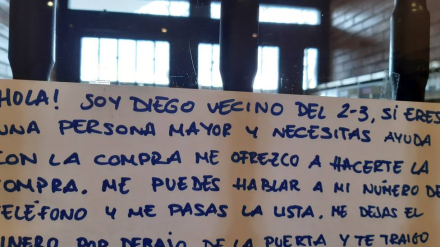 HOLA! SOY DIEGO VECINO DEL 2-3, SI ERES
UNA PERSONA MAYOR Y NECESITAS AYUDA
CON LA COMPRA ME OFREZCO A HACERTE LA
COMPRA. ME PUEDES HABLAR A MI NÚMERO DE
TELÉFONO Y ME PASAS LA LISTA. ME DEJAS EL
DINERO POR DEBAJO DE LA PUERTA Y TE TRAIGO